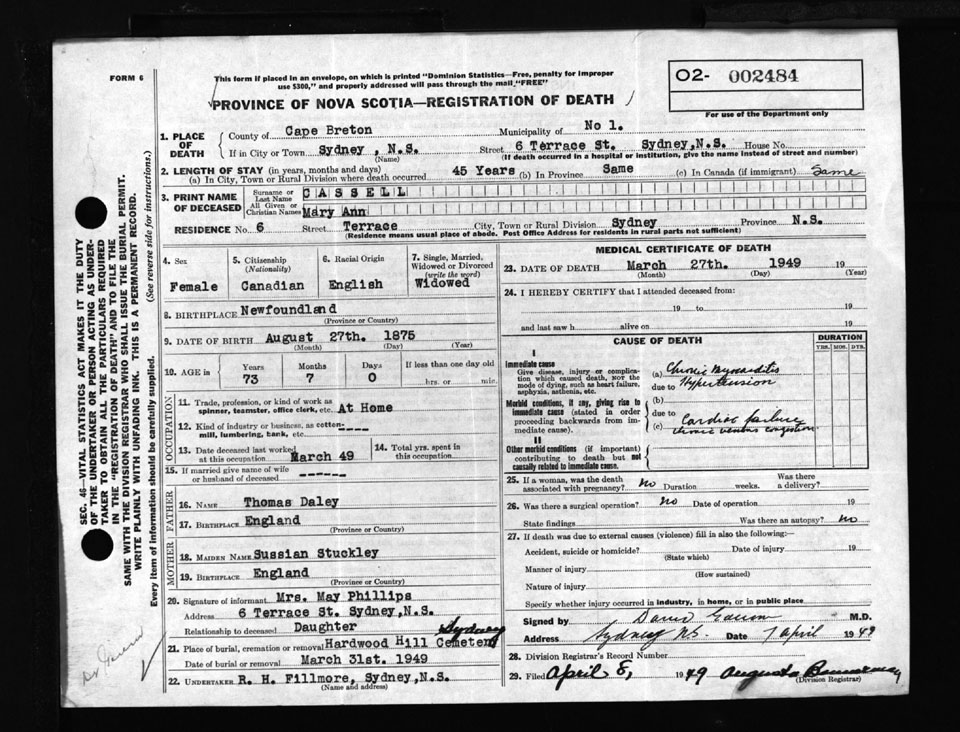 FORM 6
This form if placed in an envelope, on which is printed "Dominion Statistics—Free, penalty for improper
use $300," and properly addressed will pass through the mail "FREE"
PROVINCE OF NOVA SCOTIA—REGISTRATION OF DEATH
O2- 002484
For use of the Department only
1. PLACE OF DEATH
County of Cape Breton Municipality of No 1.
If in City or Town Sydney , N.S. Street 6 Terrace St. Sydney,N.S. House No.
(Name) (If death occurred in a hospital or institution, give the name instead of street and number)
2. LENGTH OF STAY (in years, months and days)
(a) In City, Town or Rural Division where death occurred 45 Years (b) In Province Same (c) In Canada (if immigrant) Same
3. PRINT NAME OF DECEASED
Surname or Last Name CASSELL
All Given or Christian Names Mary Ann
RESIDENCE No. 6 Street Terrace City, Town or Rural Division Sydney Province N.S.
(Residence means usual place of abode. Post Office Address for residents in rural parts not sufficient)
4. Sex
Female
5. Citizenship
(Nationality)
Canadian
6. Racial Origin
English
7. Single, Married,
Widowed or Divorced
(write the word)
Widowed
8. BIRTHPLACE Newfoundland
(Province or Country)
9. DATE OF BIRTH August 27th. 1875
(Month) (Day) (Year)
10. AGE in Years Months Days If less than one day old
73 7 0 hrs. or min.
OCCUPATION
11. Trade, profession, or kind of work as
spinner, teamster, office clerk, etc. At Home
12. Kind of industry or business, as cotten-
mill, lumbering, bank, etc. -----
13. Date deceased last worked
at this occupation March 49
14. Total yrs. spent in
this occupation.
15. If married give name of wife
or husband of deceased -------
FATHER
16. NAME Thomas Daley
17. BIRTHPLACE England
(Province or Country)
MOTHER
18. MAIDEN NAME Sussian Stuckley
19. BIRTHPLACE England
(Province or Country)
20. Signature of informant Mrs. May Phillips
Address 6 Terrace St. Sydney,N.S.
Relationship to deceased Daughter
21. Place of burial, cremation or removal Hardwood Hill Cemetery Sydney
Date of burial or removal March 31st. 1949
22. UNDERTAKER R. H. Fillmore, Sydney,N.S.
(Name and address)
MEDICAL CERTIFICATE OF DEATH
23. DATE OF DEATH March 27th. 1949 19
(Month) (Day) (Year)
24. I HEREBY CERTIFY that I attended deceased from:
19 to 19
and last saw h alive on 19
CAUSE OF DEATH DURATION
YRS. MOS. DYS.
I
Immediate cause
Give disease, injury or complica-
tion which caused death, NOT the
mode of dying, such as heart failure,
asphyxia, asthenia, etc.
(a) Chronic Myocarditis
due to Hypertension
Morbid conditions, if any, giving rise to
immediate cause (stated in order
proceeding backwards from im-
mediate cause).
(b)
due to
(c) Cardiac failure
chronic venous congestion
II
Other morbid conditions (if important)
contributing to death but not
causally related to immediate cause.
25. If a woman, was the death
associated with pregnancy? No Duration weeks. Was there
a delivery?
26. Was there a surgical operation? No Date of operation 19
State findings Was there an autopsy? No
27. If death was due to external causes (violence) fill in also the following:—
Accident, suicide or homicide? Date of injury 19
(State which)
Manner of injury
(How sustained)
Nature of injury
Specify whether injury occurred in industry, in home, or in public place
Signed by M.D.
Address Sydney NS. Date 7 April 1949
28. Division Registrar's Record Number
29. Filed April 8, 1949 Augusta
(Division Registrar)
SEC. 46—VITAL STATISTICS ACT MAKES IT THE DUTY
OF THE UNDERTAKER OR PERSON ACTING AS UNDER-
TAKER TO OBTAIN ALL THE PARTICULARS REQUIRED
IN THE "REGISTRATION OF DEATH" AND TO FILE THE
SAME WITH THE DIVISION REGISTRAR WHO SHALL ISSUE THE BURIAL PERMIT.
WRITE PLAINLY WITH UNFADING INK. THIS IS A PERMANENT RECORD.
Every item of information should be carefully supplied. (See reverse side for instructions.)